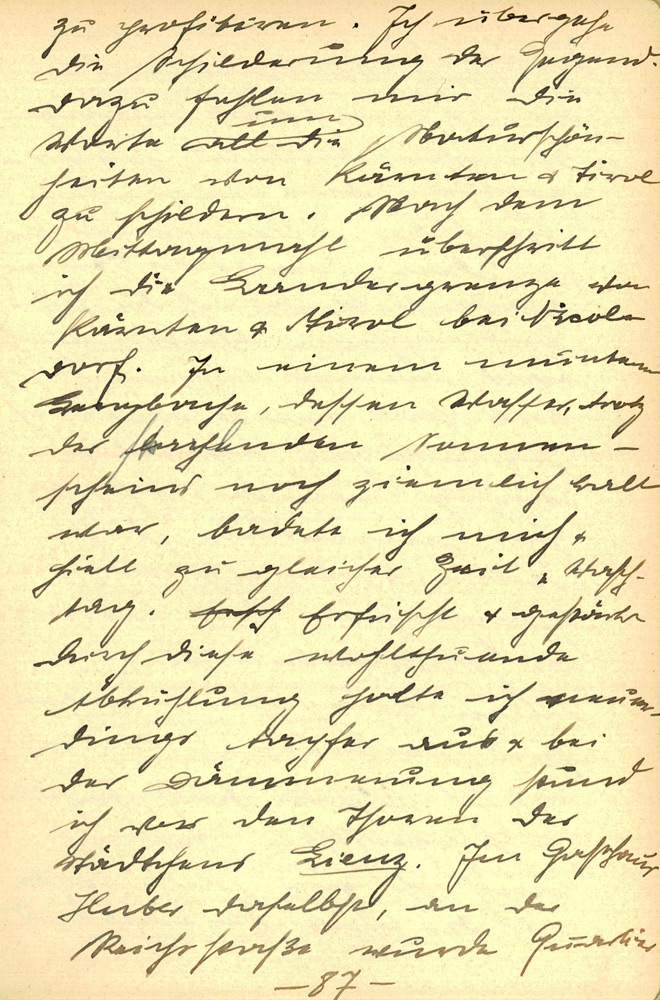 zu profitiren. Ich übergehe
die Schilderung der Gegend.
dazu fehlen mir die
Worte all die um Naturschön-
heiten von Kärnten & Tirol
zu schildern. Nach dem
Mittagmahl überschritt
ich die Landesgrenze von
Kärnten & Tirol bei Nicols-
dorf. In einem muntern
Bergbache, dessen Wasser, trotz
des stechenden Sonnen-
scheins noch ziemlich kalt
war, badete ich mich &
hielt zu gleicher Zeit „Wasch-
tag. Erfrischt & gestärkt
durch diese wohlthuende
Abkühlung holte ich neuer-
dings tapfer aus & bei
der Dämmerung stund
ich vor den Thoren des
Städtchens Lienz. Im Gasthaus
Huber daselbst, an der
Reichsstraße wurde Quartier
– 87 –